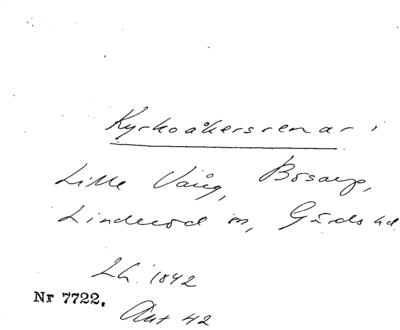 Kyrkoåkersrenar i
Lille Vång, Bosarp,
Linderöd sn, Gärds hd
LG. 1842
Nr 7722.
Akt 42